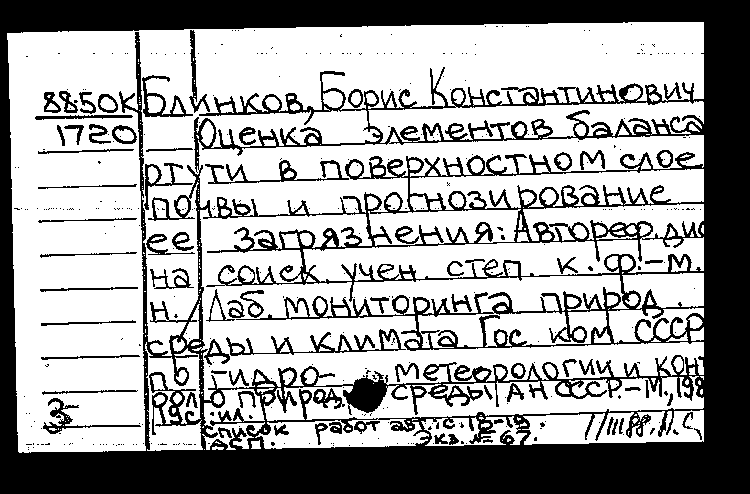 88:50К Блинков, Борис Константинович
1720 Оценка элементов баланса
ртути в поверхностном слое
почвы и прогнозирование
ее загрязнения: Автореф. дис
на соиск. учен. степ. к. ф.-м.
н. / Лаб. мониторинга природ.
среды и климата Гос ком. СССР
по гидро- метеорологии и конт
ролю природ. среды АН СССР. - М., 198
19с. ил.
список работ авт.: с. 18-19.
Экз. № 67.